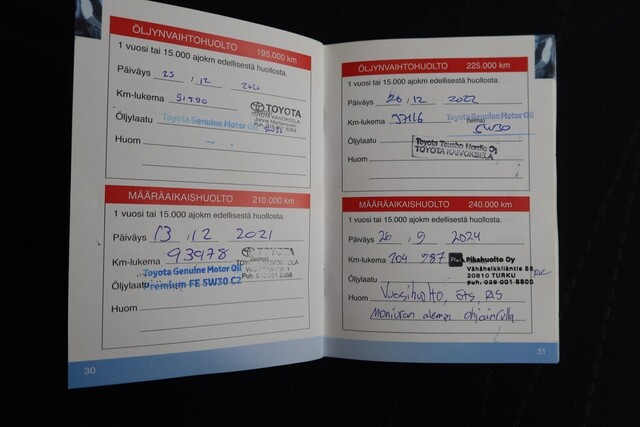 ÖLJYNVAIHTOHUOLTO 195.000 km
1 vuosi tai 15.000 ajokm edellisestä huollosta.
Päiväys 23 . 12 2020
Km-lukema
TOYOTA
Öljylaatu Toyota Genuine Motor Oil
Huom
MÄÄRÄAIKAISHUOLTO 210.000 km
1 vuosi tai 15.000 ajokm edellisestä huollosta.
Päiväys 13 . 12 2021
Km-lukema 93978
TOYOTA
Toyota Genuine Motor Oil
Öljylaatu Premium FE 5W30 C2
Huom
30
ÖLJYNVAIHTOHUOLTO 225.000 km
1 vuosi tai 15.000 ajokm edellisestä huollosta.
Päiväys 20 . 12 2022
Km-lukema 97116
Toyota Genuine Motor Oil
Öljylaatu 5W30
Toyota Tsusho Nordic Oy
TOYOTA KAIVOKSELA
Huom
MÄÄRÄAIKAISHUOLTO 240.000 km
1 vuosi tai 15.000 ajokm edellisestä huollosta.
Päiväys 26 . 9 2024
Km-lukema 104 987
Pikahuolto Oy
Vähäheikkiläntie 55
20810 TURKU
Öljylaatu
puh. 029 001 5500
Huom Vuosihuolto,
31